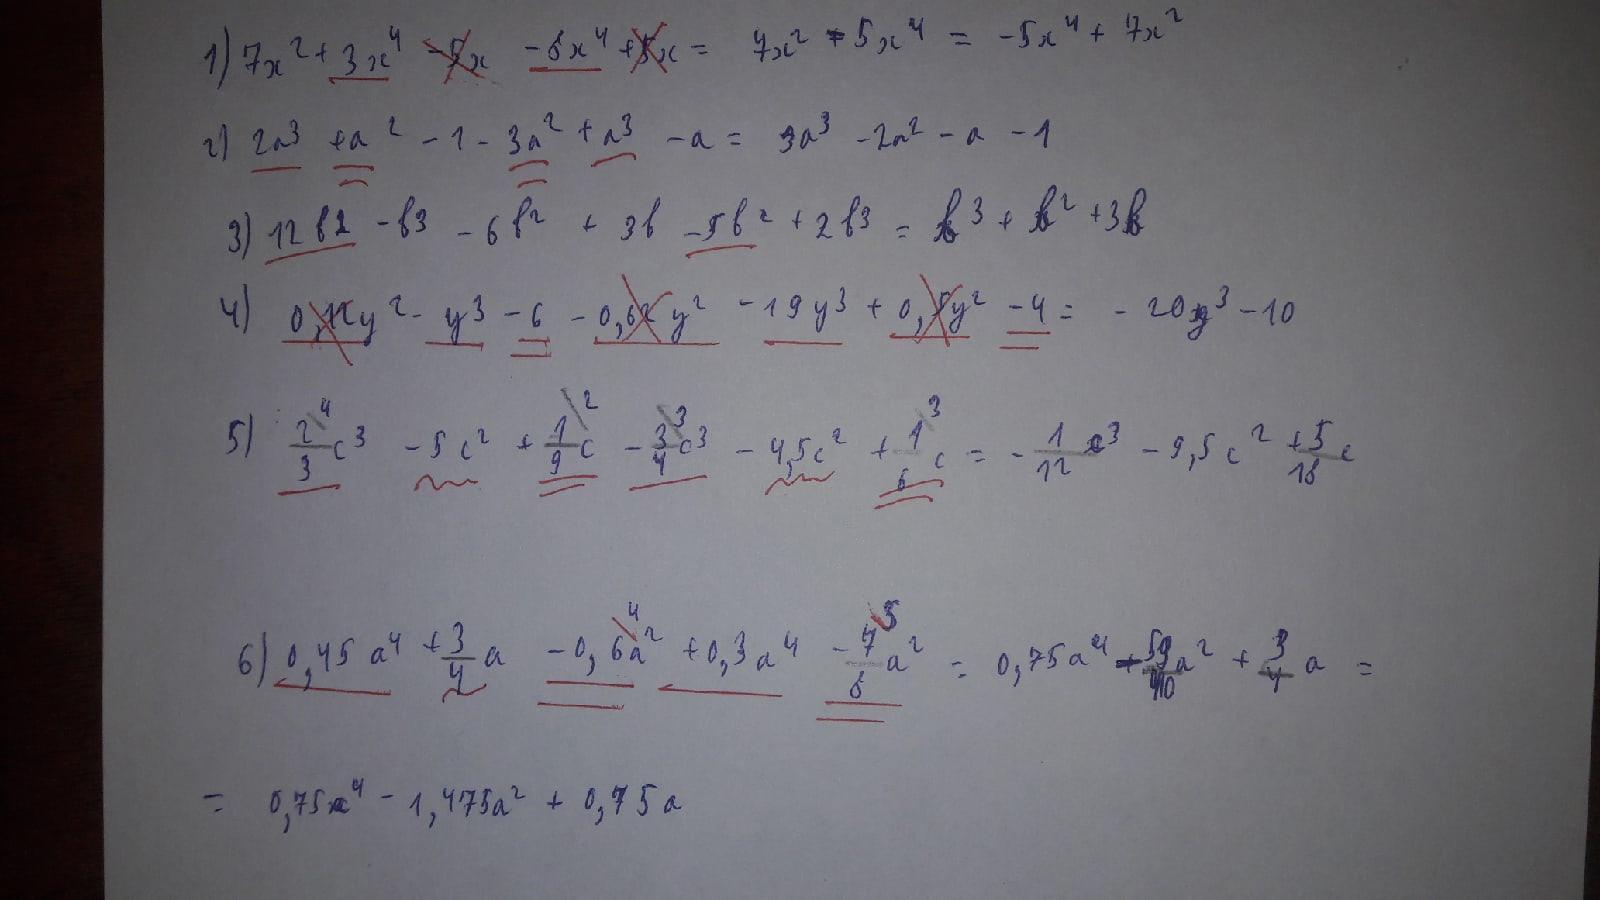 1) 7x² + 3x⁴ - 5x - 8x⁴ + 5x = 7x² - 5x⁴ = -5x⁴ + 7x²
2) 2a³ + a² - 1 - 3a² + a³ - a = 3a³ - 2a² - a - 1
3) 12b2 - b3 - 6b² + 3b - 5b² + 2b3 = b³ + b² + 3b
4) y² - y3 - 6 - y² - 19y3 + y² - 4 = - 20y³ - 10
5) 2/3 c³ - 5c² + 1/9 c - 3/4 c³ - 4,5c² + 1/6 c = - 1/12 c³ - 9,5c² + 5/18 c
6) 0,45a⁴ + 3/4 a - 0,6a² + 0,3a⁴ - 7/8 a² = 0,75a⁴ - a² + 3/4 a =
= 0,75a⁴ - 1,475a² + 0,75a